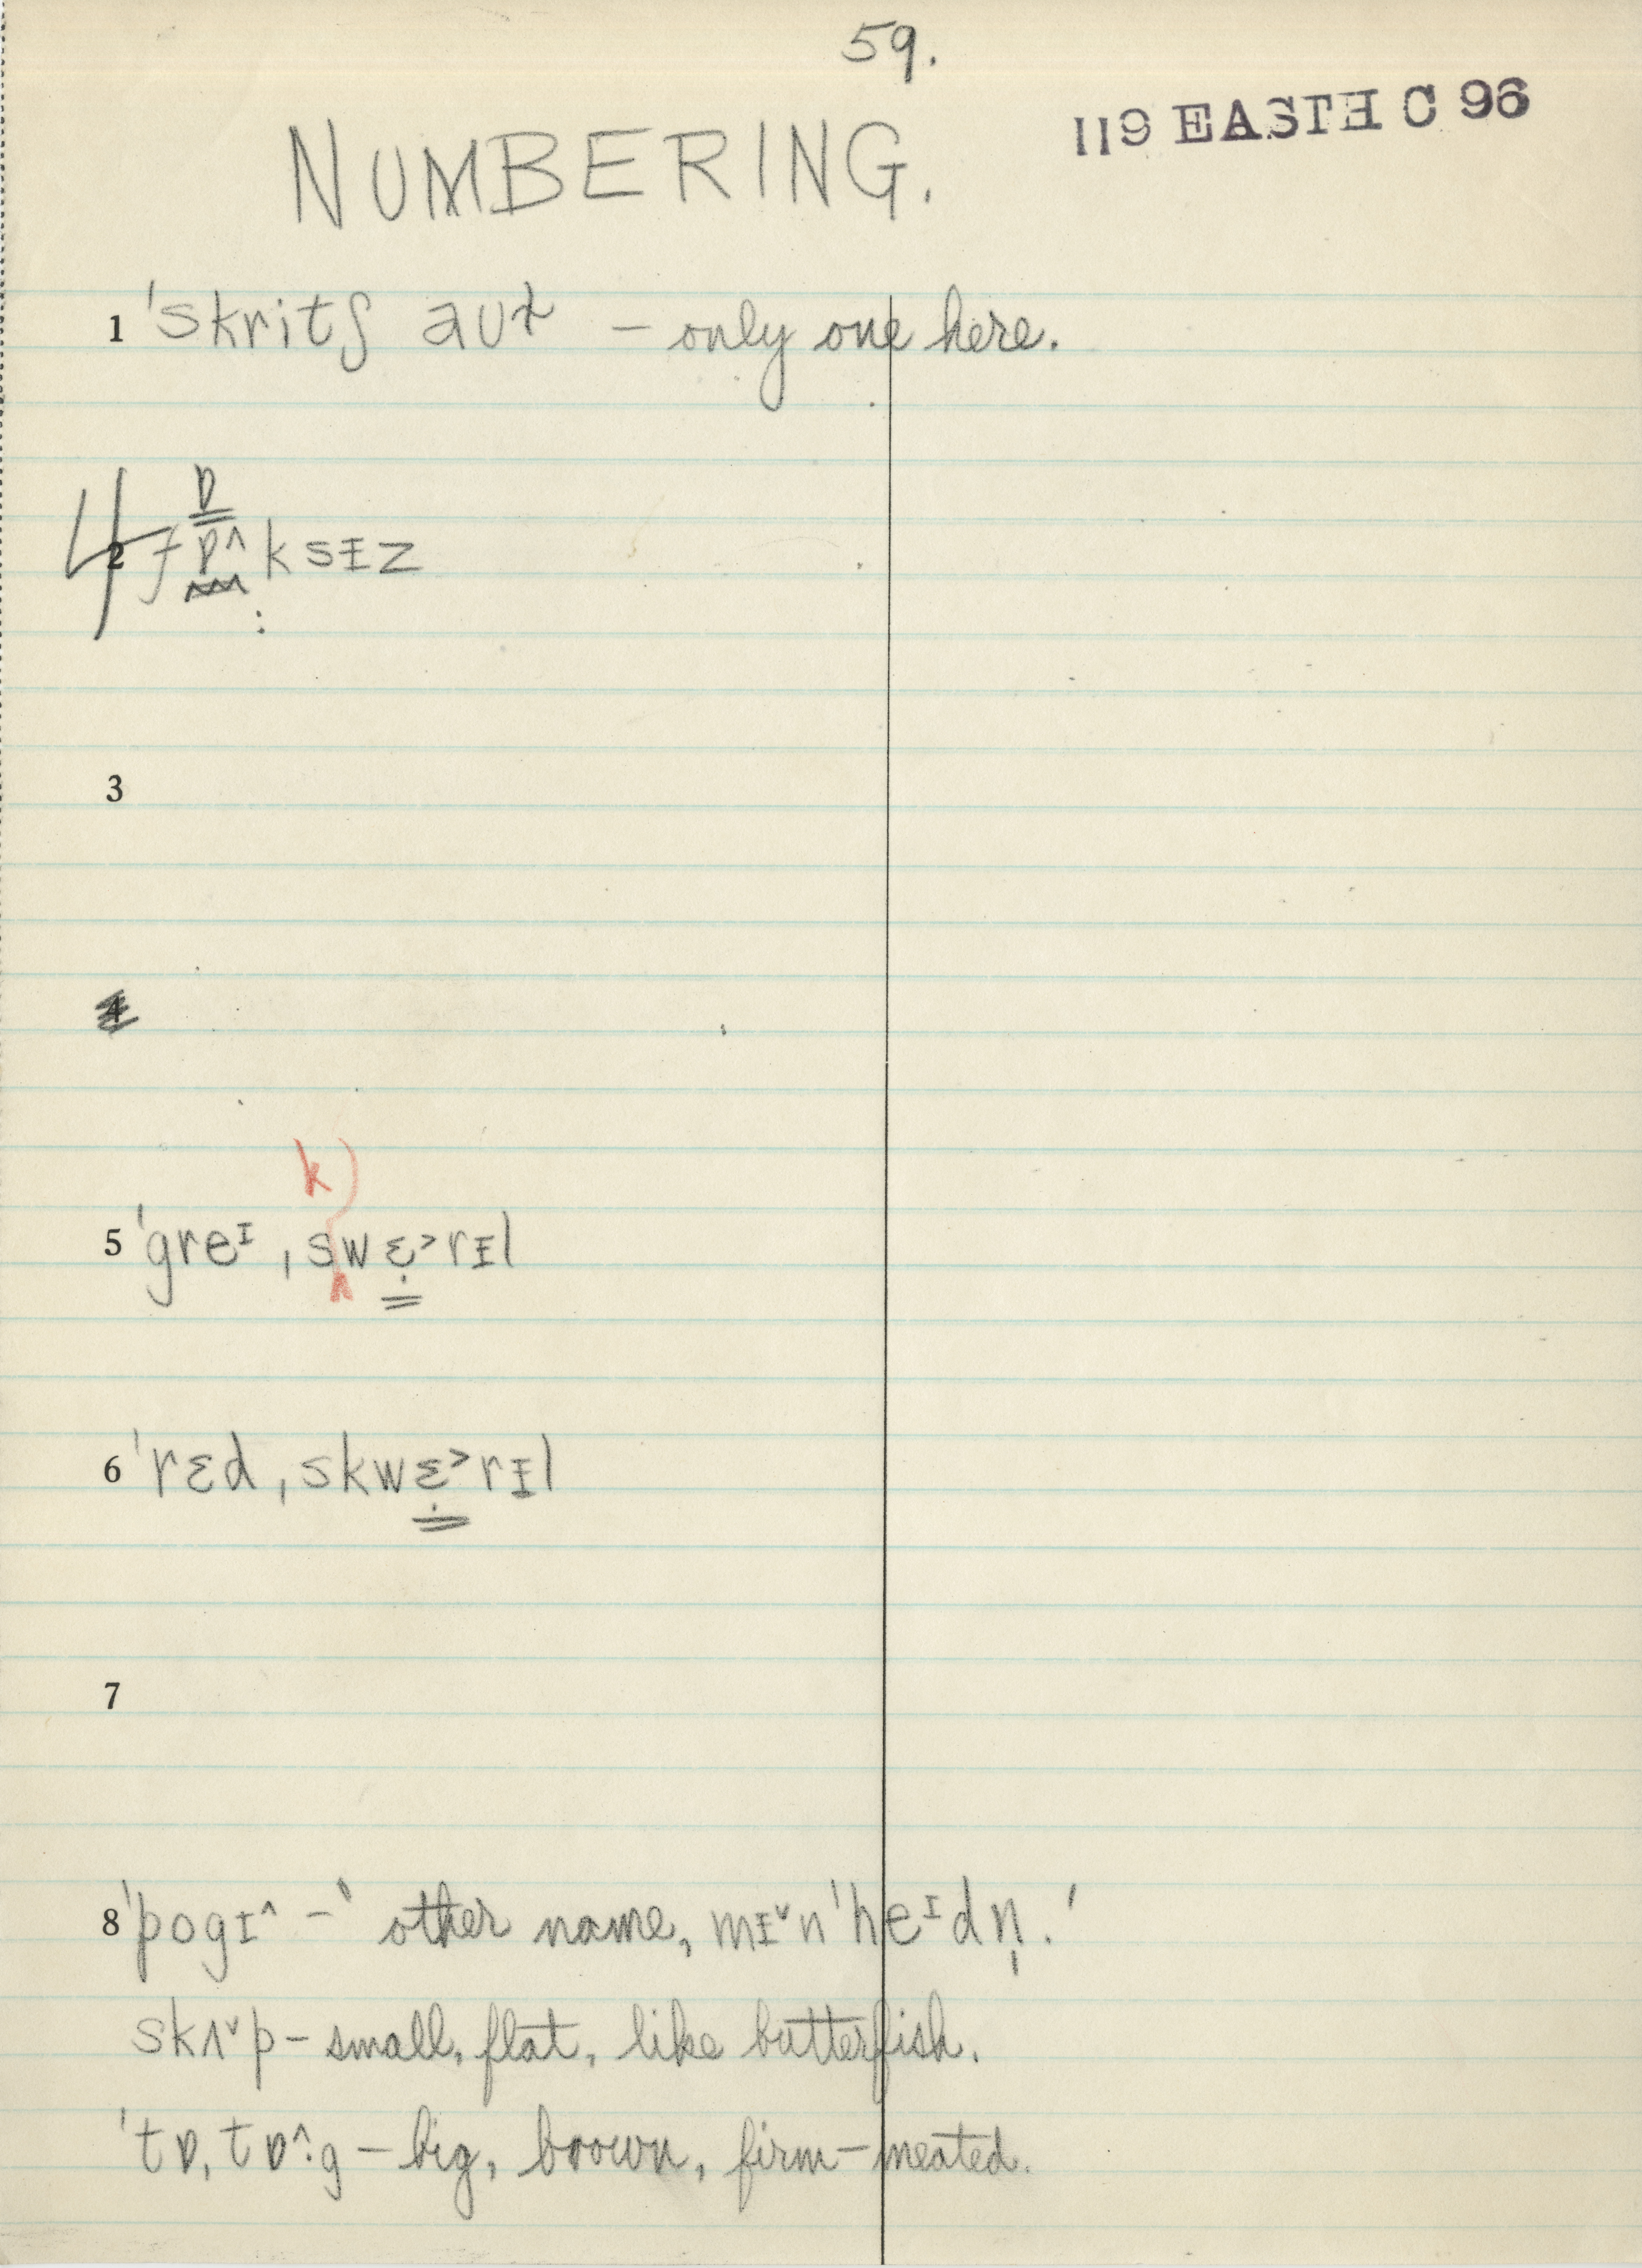 59.
119 EAST H C 96
NUMBERING.
1 ˈskritʃ aʊɫ – only one here.
ɒ
4 2 fɒ^ksɪz
3
4
k)
5 ˈgreᶦˌswɛ˃rɪl
6 ˈrɛdˌskwɛ˃rɪl
7
8 ˈpogɪ^ – ‵other name, mɪˇnˈheᶦdn̩.′
skʌˇp – small, flat, like butterfish.
ˈtɒˌtɒ^:g – big, brown, firm-meated.